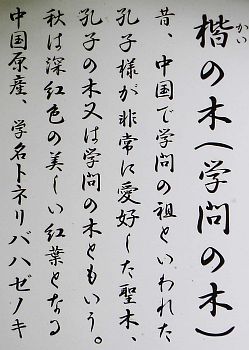 楷の木(学問の木)
かい
昔、中国で学問の祖といわれた
孔子様が非常に愛好した聖木、
孔子の木又は学問の木ともいう。
秋は深紅色の美しい紅葉となる
中国原産、学名トネリバハゼノキ